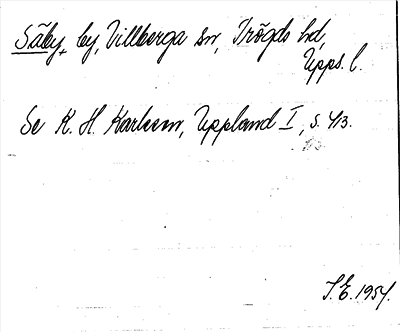 Säby, by, Villberga sn, Trögds hd,
Upps. l.
Se K. H. Karlsson, Uppland I, s. 413.
S.E. 1954.